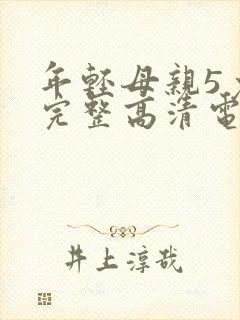 年輕母親5
完整高清電
井上淳哉